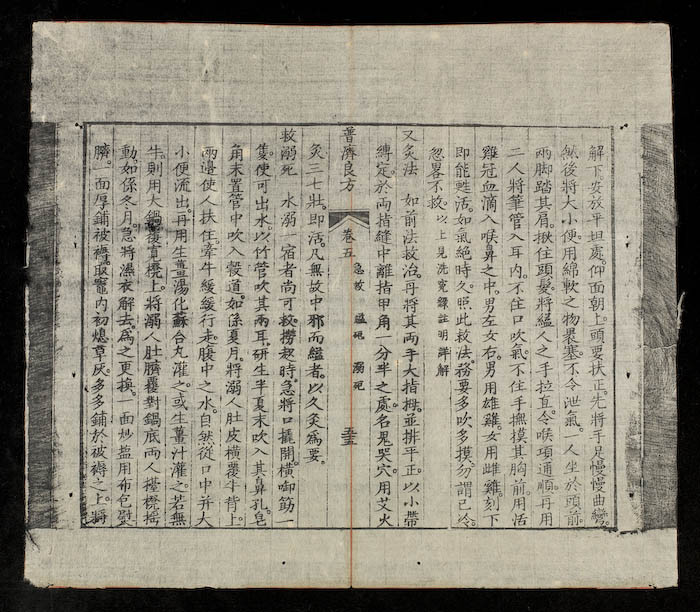 解下安放平坦處。仰面朝上。頭要扶正。先將手足慢慢曲彎。
然後將大小便用綿軟之物褁塞。不令泄氣。一人坐於頭前。
兩脚踏其肩。揪住頭髮。將縊人之手拉直。令喉項通順。再用
二人將筆管入耳內。不住口吹氣。不住手撫摸其胸前。用活
雞冠血滴入喉鼻之中。男左女右。男用雄雞。女用雌雞。刻下
即能甦活。如氣絕時久。照此救法。務要多吹多摸。勿謂已冷
忽畧不救。以上見洗寃錄註明詳解
又灸法 如前法救治。再將其兩手大指拇。並排平正。以小帶
縛定於兩指縫中。離指甲角一分半之處。名鬼哭穴。用艾火
普濟良方 卷五 急救 縊死 溺死 五十五
灸三七壯。即活。凡無故中邪而縊者。以久灸爲要。
救溺死 水溺一宿者尚可救。撈起時。急將口撬開。橫啣筯一
隻。使可出水。以竹管吹其兩耳。研生半夏末吹入其鼻孔。皂
角末置管中。吹入穀道。如係夏月。將溺人肚皮橫覆牛背上。
兩邊使人扶住。牽牛緩緩行走。腹中之水。自然從口中并大
小便流出。再用生薑湯化蘇合丸灌之。或生薑汁灌之。若無
牛。則用大鍋覆賣櫈上。將溺人肚臍覆對鍋底。兩人擡櫈搖
動。如係冬月。急將濕衣解去。爲之更換。一面炒塩用布包熨
臍。一面厚鋪被褥。取竈內初熄草灰。多多鋪於被褥之上。將